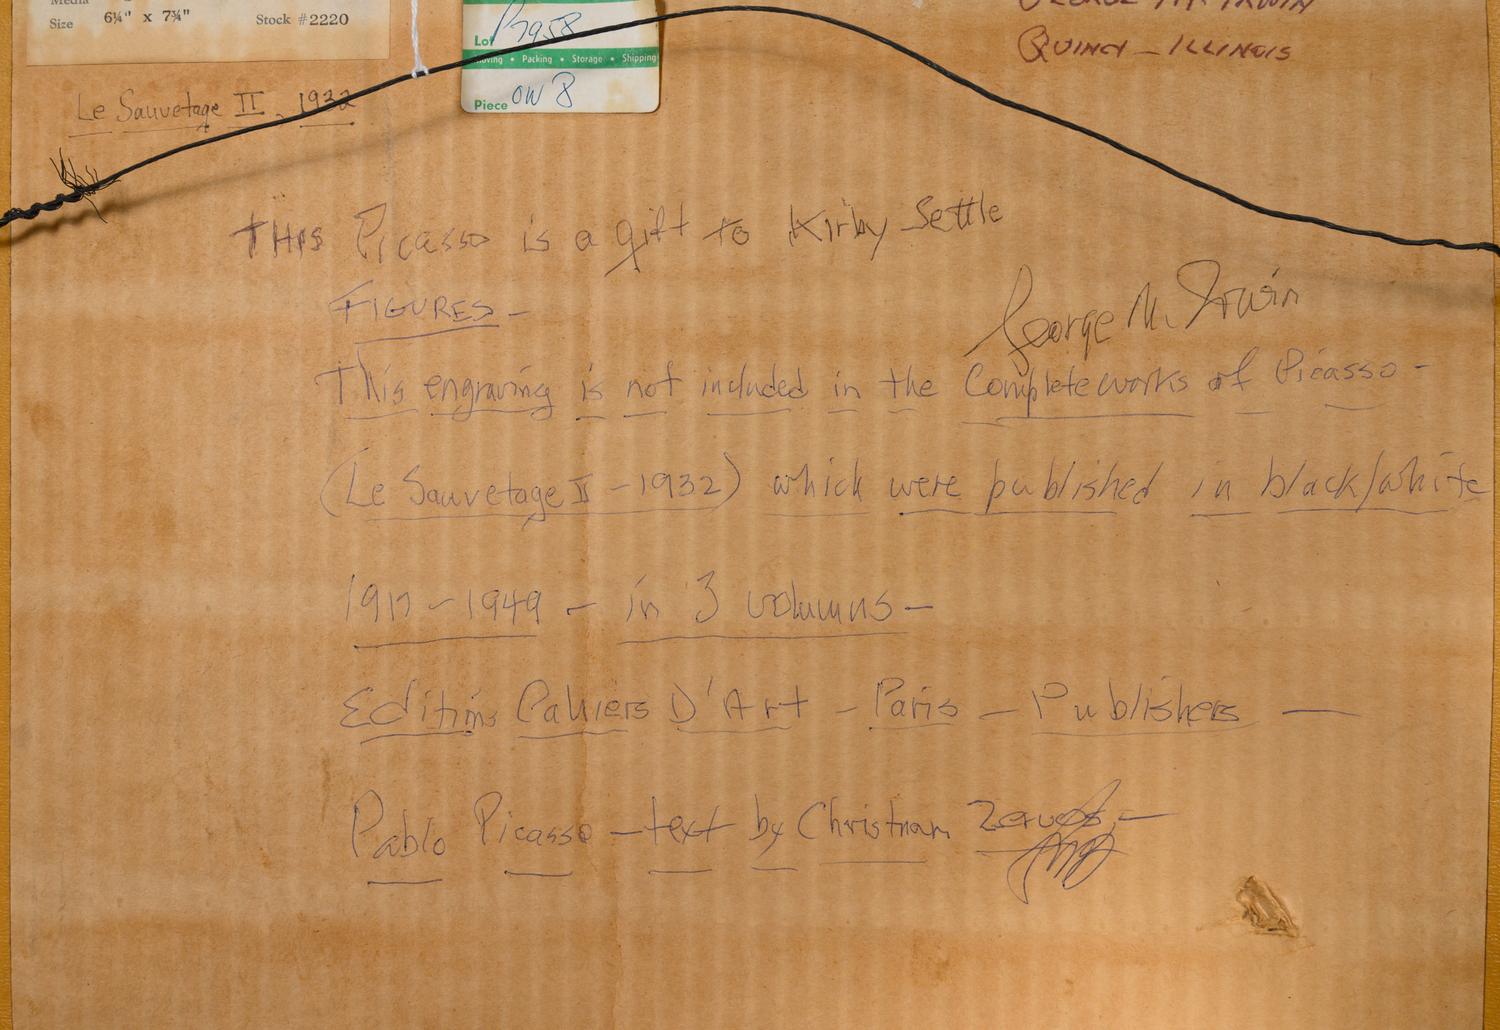 Media
Size 6¼" x 7¾" Stock #2220
Lot P7958
Moving • Packing • Storage • Shipping
Piece OW 8
GEORGE M. IRWIN
QUINCY - ILLINOIS
Le Sauvetage II, 1932
THIS Picasso is a gift to Kirby Settle
George M. Irwin
FIGURES -
This engraving is not included in the Complete works of Picasso -
(Le Sauvetage II - 1932) which were published in black/white
1917 - 1949 - in 3 volumns -
Editions Cahiers D'Art - Paris - Publishers -
Pablo Picasso - text by Christnam Zervos -